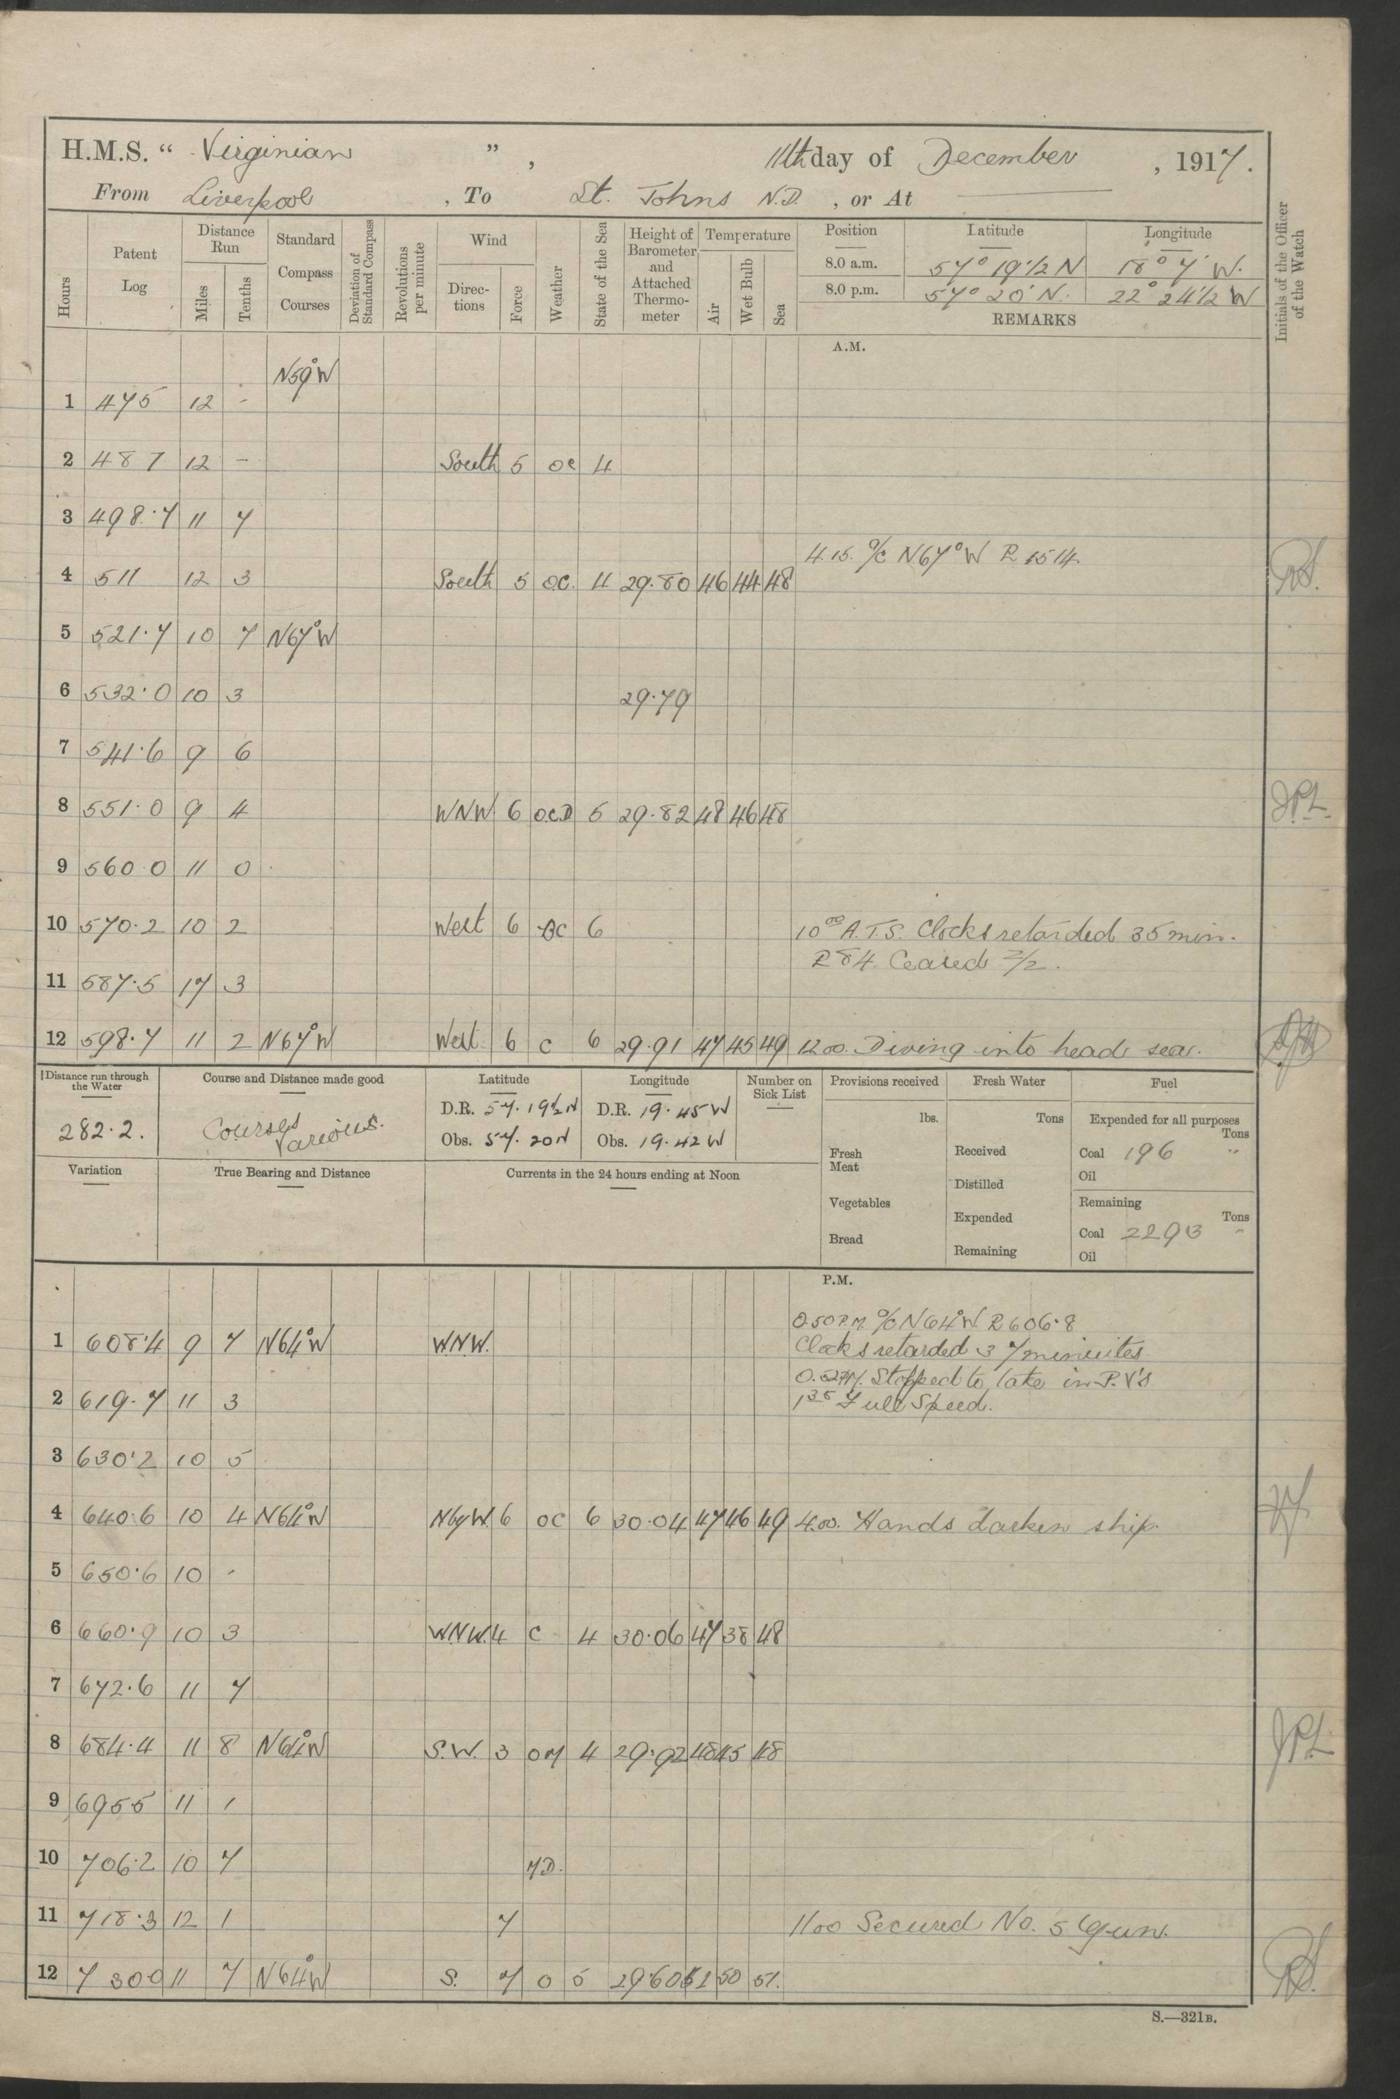 H.M.S. “ Virginian ” , 11th day of December , 1917.
From Liverpool , To St. Johns N.D. , or At
Hours
Patent Log
Distance Run
Miles
Tenths
Standard Compass Courses
Deviation of Standard Compass
Revolutions per minute
Wind
Directions
Force
Weather
State of the Sea
Height of Barometer and Attached Thermometer
Temperature
Air
Wet Bulb
Sea
Position Latitude Longitude
8.0 a.m. 57° 19 1/2 N 18° 7' W.
8.0 p.m. 57° 20' N. 22° 24 1/2 W
REMARKS
Initials of the Officer of the Watch
A.M.
N59°W
1 475 12 -
2 487 12 - South 5 oc 4
3 498.7 11 7
4.15. a/c N67°W R 1514.
4 511 12 3 South 5 o.c. 4 29.80 46 44 48
5 521.7 10 7 N67°W
6 532.0 10 3 29.79
7 541.6 9 6
8 551.0 9 4 WNW 6 O.C.D 5 29.82 48 46 48 JPL
9 560.0 11 0
10 570.2 10 2 West 6 oc 6 10 00 A.T.S. Clocks retarded 35 min.
R 84. Ceased Z/Z.
11 587.5 17 3
12 598.7 11 2 N67°W West 6 c 6 29.91 47 45 49 12.00. Diving into head sea.
Distance run through the Water
282.2.
Course and Distance made good
Courses Various.
Latitude
D.R. 57. 19 1/2 N
Obs. 57. 20 N
Longitude
D.R. 19. 45 W
Obs. 19. 42 W
Number on Sick List
Provisions received
lbs.
Fresh Meat
Vegetables
Bread
Fresh Water
Tons
Received
Distilled
Expended
Remaining
Fuel
Expended for all purposes
Tons
Coal 196 "
Oil
Remaining
Tons
Coal 2293 "
Oil
Variation
True Bearing and Distance
Currents in the 24 hours ending at Noon
P.M.
0.50 P.M. a/c N64°W R 606.8
1 608.4 9 7 N64°W WNW. Clocks retarded 37 minuites
0.52PM. Stopped to take in P.V's
2 619.7 11 3 1 35 Full Speed.
3 630.2 10 5
4 640.6 10 4 N64°W NbyW 6 oc 6 30.04 47 46 49 4.00. Hands darken ship.
5 650.6 10 -
6 660.9 10 3 WNW. 4 c 4 30.06 47 38 48
7 672.6 11 7
8 684.4 11 8 N64°W S.W. 3 OM 4 29.92 48 45 48 JPL
9 695.5 11 1
10 706.2 10 7 MD.
11 718.3 12 1 7 1100 Secured No. 5 Gun.
12 730.0 11 7 N64°W S. 7 O 5 29.60 51 50 51.
S.—321B.